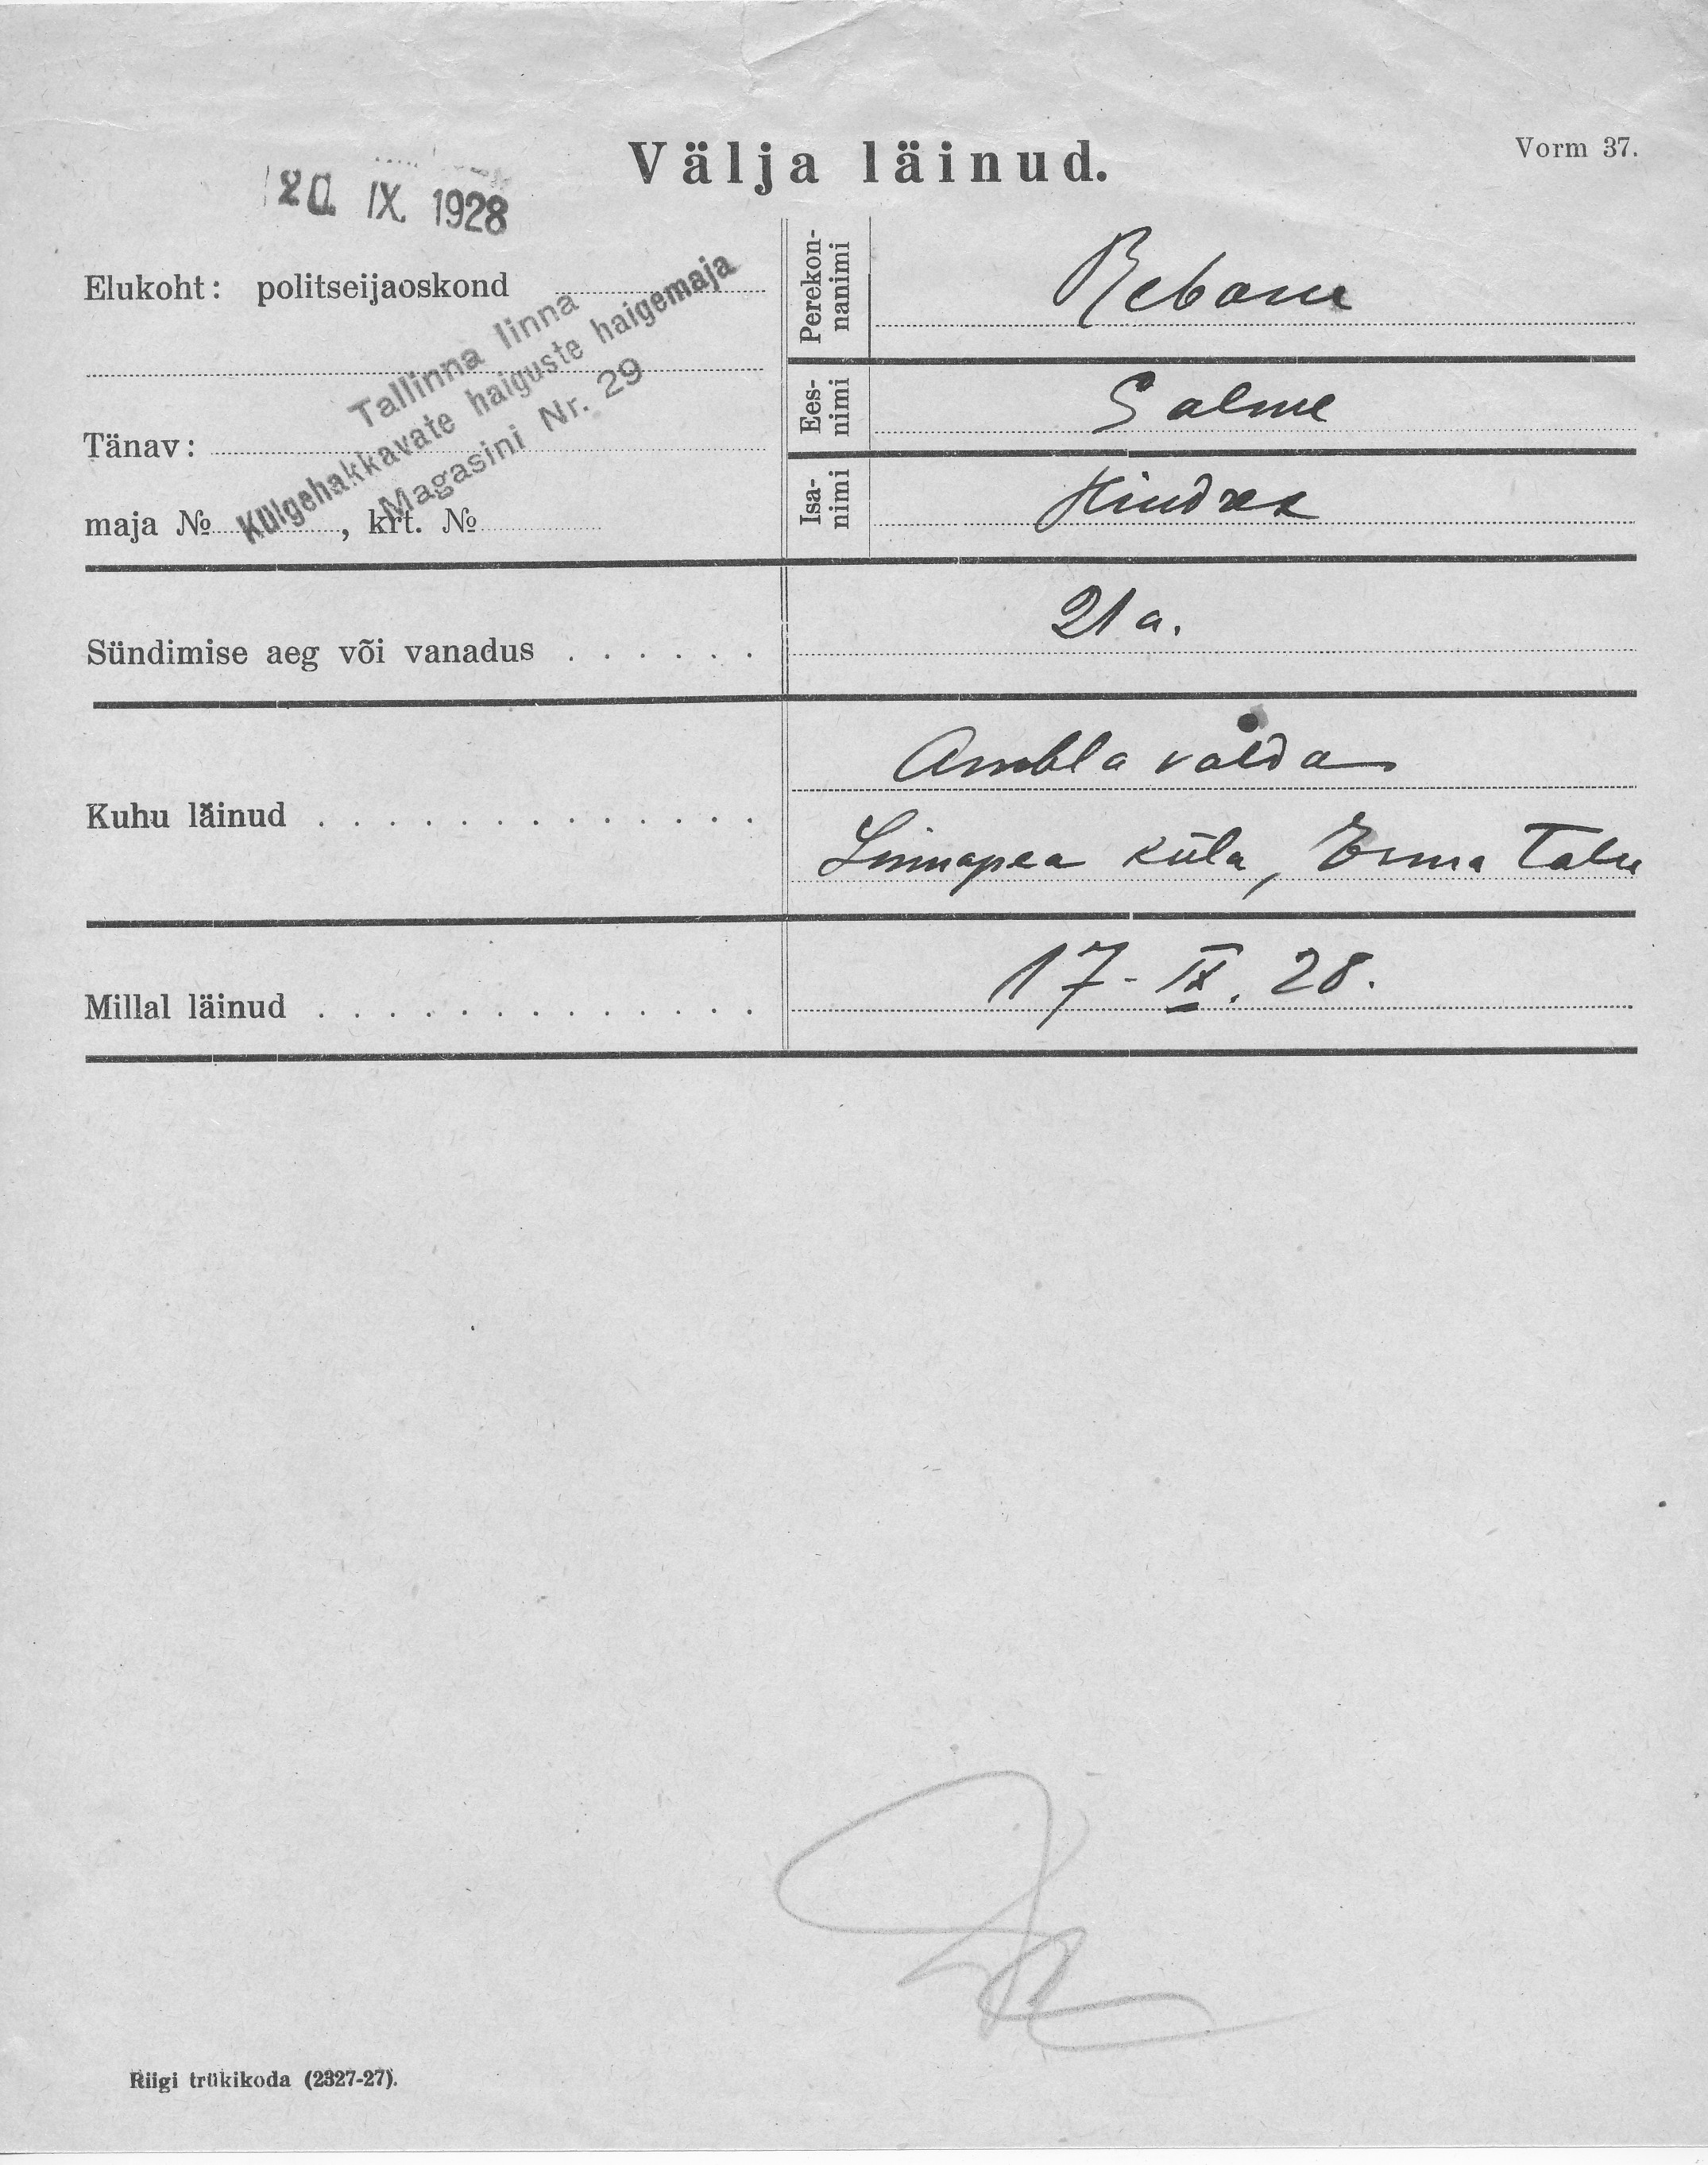 Välja läinud.
Vorm 37.
20. IX. 1928
Elukoht: politseijaoskond
Tallinna linna
Külgehakkavate haiguste haigemaja
Magasini Nr. 29
Tänav:
maja №, krt. №
Perekon-
nanimi
Rebane
Ees-
nimi
Salme
Isa-
nimi
Hindrek
Sündimise aeg või vanadus . . . . . .
21 a.
Kuhu läinud . . . . . . . . . . . . .
Ambla valda
Linnapea küla, Erma talu
Millal läinud . . . . . . . . . . . . .
17 - IX. 28.
Riigi trükikoda (2327-27).